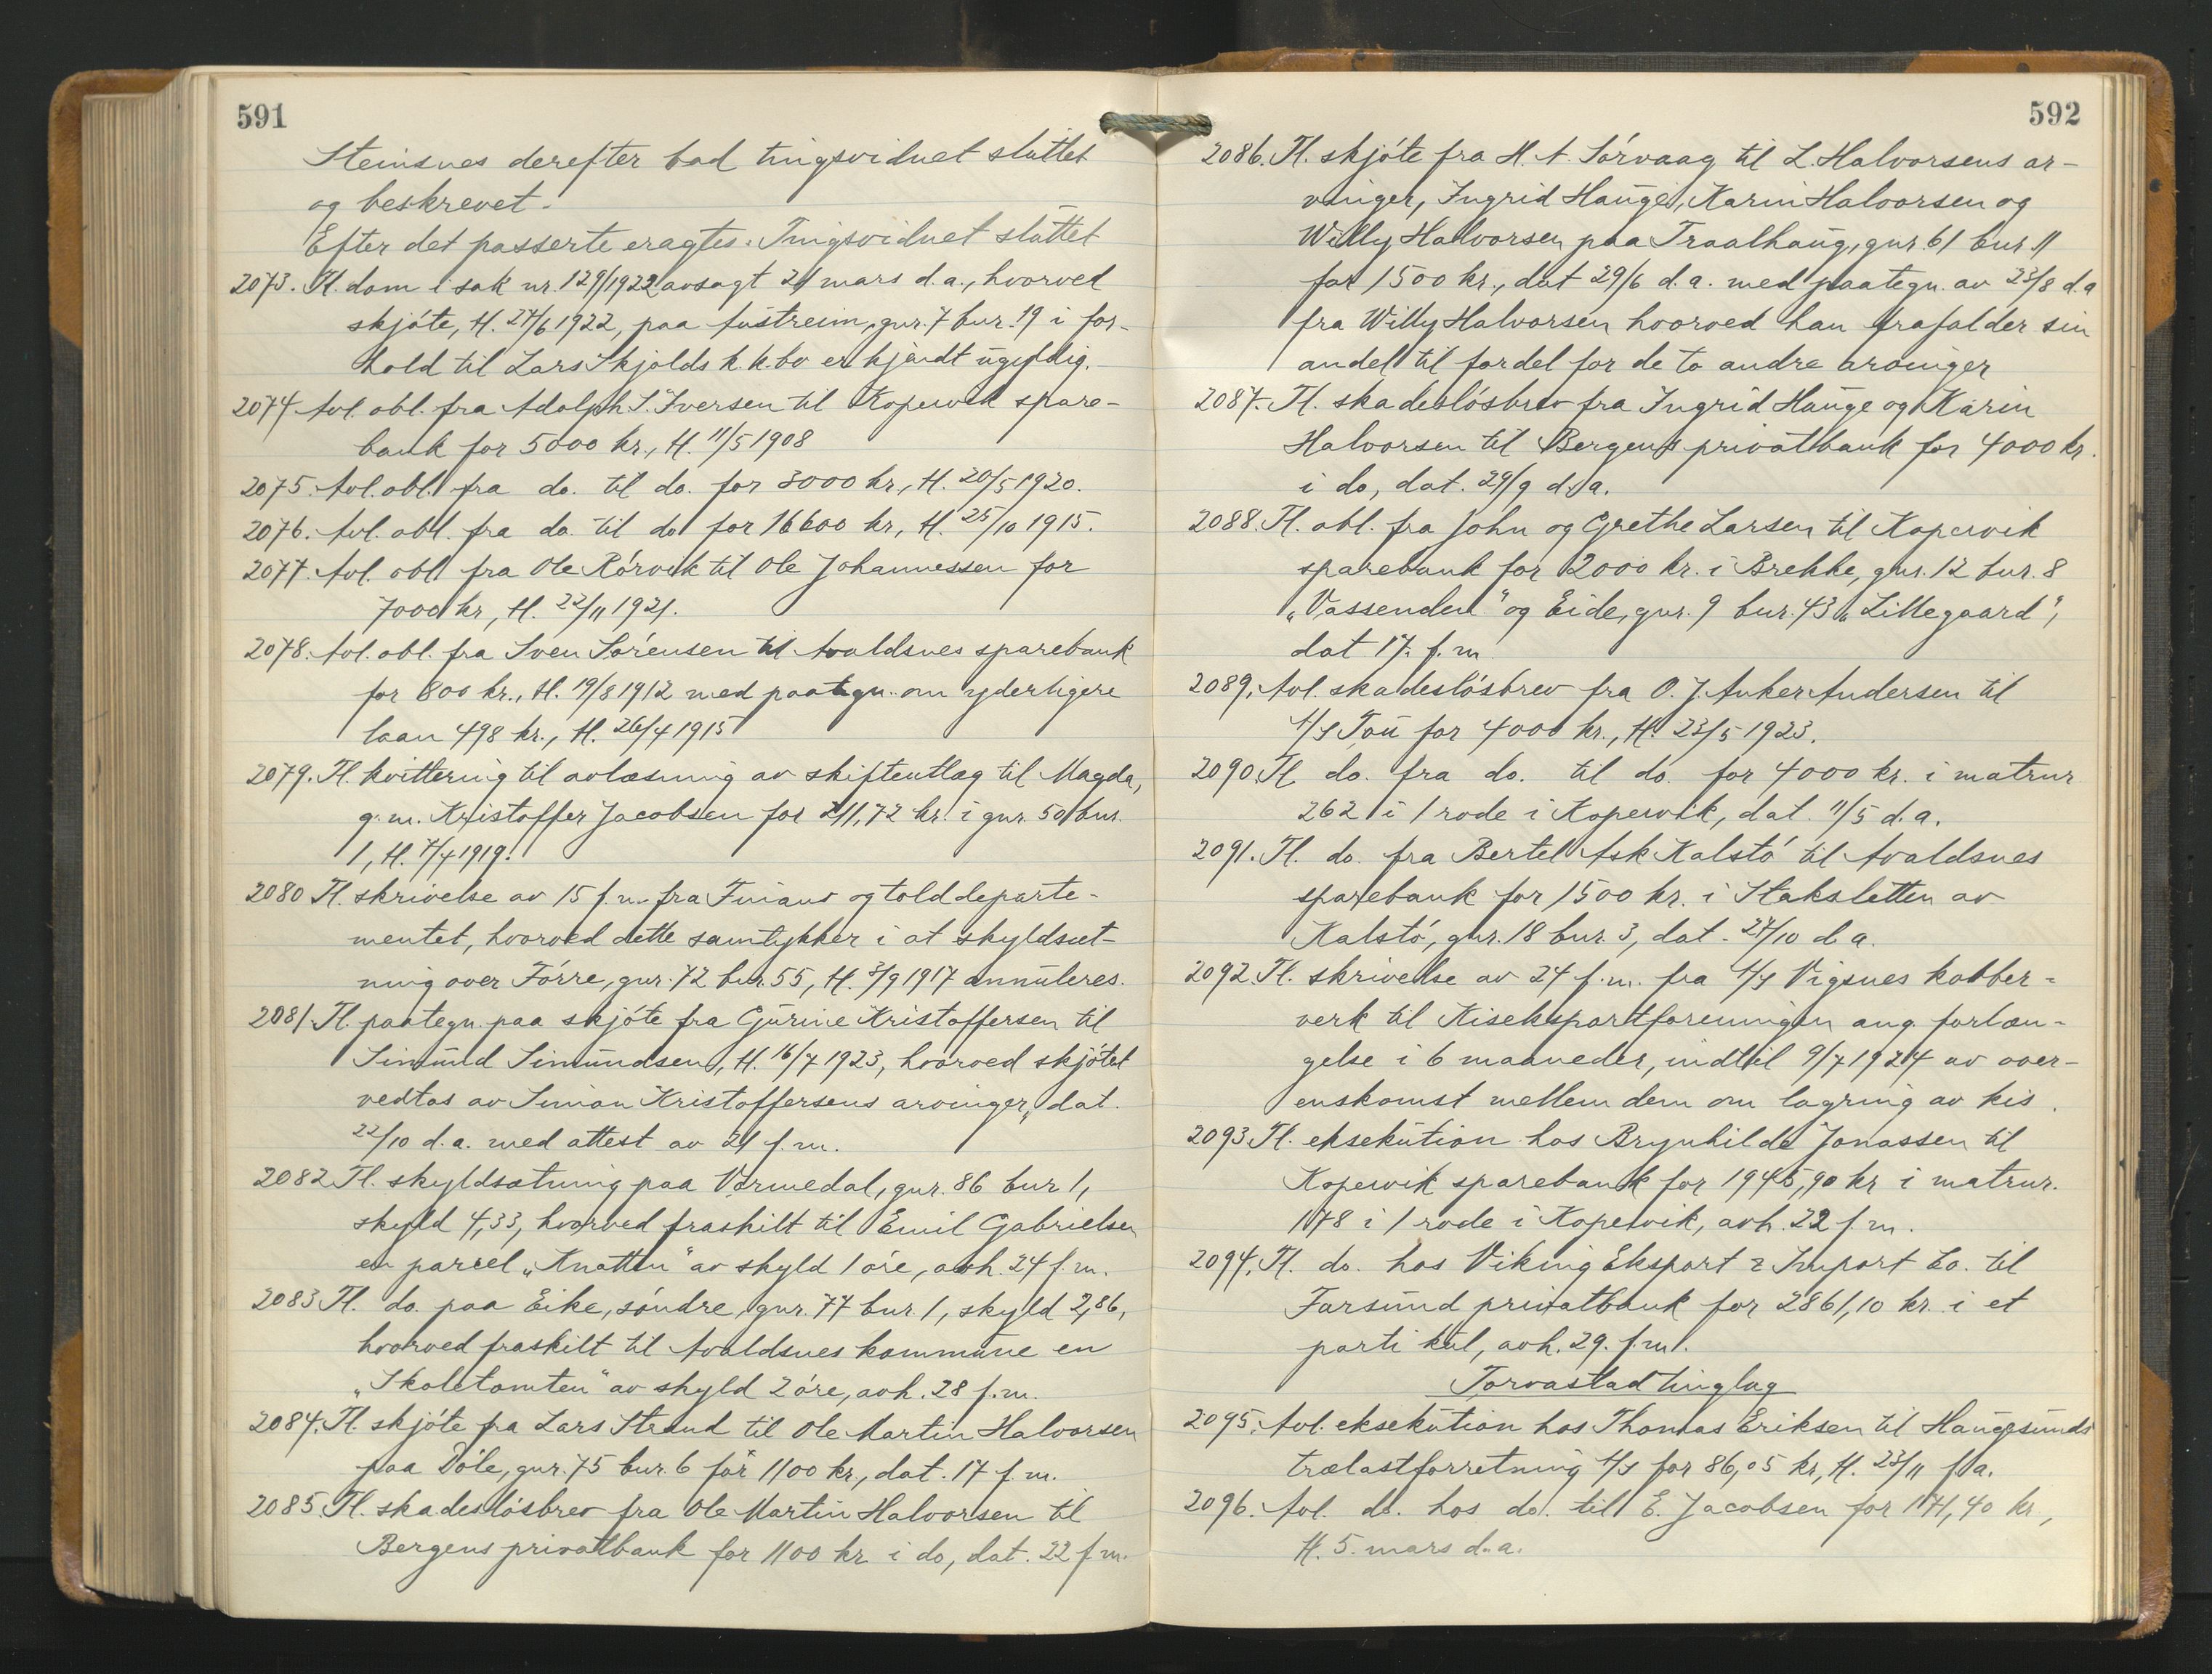 591
Steinsnes derefter bad tingsvidnet sluttet
og beskrevet.
Efter det passerte eragtes: Tingsvidnet sluttet
2073. Tl. dom i sak nr. 129/1922 avsagt 21 mars d.a., hvorved
skjøte, tl. 27/6 1922, paa Austreim, gnr. 7 bnr. 19 i for-
hold til Lars Skjolds k.k.bo er kjendt ugyldig.
2074 Avl. obl. fra Adolph S. Iversen til Kopervik spare-
bank for 5000 kr., tl. 11/5 1908
2075. Avl. obl. fra do. til do. for 3000 kr., tl. 20/5 1920.
2076. Avl. obl. fra do til do for 16600 kr, tl. 25/10 1915.
2077. Avl. obl fra Ole Rørvik til Ole Johannessen for
7000 kr, tl. 22/11 1921.
2078. Avl. obl. fra Sven Sørensen til Avaldsnes sparebank
for 800 kr., tl. 19/8 1912 med paategn. om yderligere
laan 498 kr., tl. 26/4 1915
2079. Tl. kvittering til avlæsning av skifteutlæg til Magda,
g.m. Kristoffer Jacobsen for 211,72 kr. i gnr. 50 bnr.
1, tl. 7/4 1919.
2080 Tl. skrivelse av 15 f.m. fra Finans og tolddeparte-
mentet, hvorved dette samtykker i at skyldsæt-
ning over Førre, gnr. 72 bnr. 55, tl. 3/9 1917 annuleres.
2081. Tl. paategn. paa skjøte fra Gurine Kristoffersen til
Simund Simundsen, tl. 16/7 1923, hvorved skjøtet
vedtas av Simon Kristoffersens arvinger, dat.
22/10 d.a. med attest av 21 f.m.
2082 Tl. skyldsætning paa Vormedal, gnr. 86 bnr 1,
skyld 4,33, hvorved fraskilt til Emil Gabrielsen
en parcel „Knatten" av skyld 1 øre, avh. 24 f.m.
2083 Tl. do. paa Eike, søndre, gnr. 77 bnr. 1, skyld 2,86,
hvorved fraskilt til Avaldsnes kommune en
„Skoletomten" av skyld 2 øre, avh. 28 f.m.
2084. Tl. skjøte fra Lars Strand til Ole Martin Halvorsen
paa Døle, gnr. 75 bnr. 6 for 1100 kr., dat. 17 f.m.
2085. Tl. skadesløsbrev fra Ole Martin Halvorsen til
Bergens privatbank for 1100 kr i do, dat. 22 f.m.
592
2086. Tl. skjøte fra H. A. Sørvaag til L. Halvorsens ar-
vinger, Ingrid Hauge, Karin Halvorsen og
Willy Halvorsen paa Traalhaug, gnr. 61 bnr. 11
for 1500 kr., dat 29/6 d.a. med paategn. av 23/8 d.a
fra Willy Halvorsen hvorved han frafalder sin
andel til fordel for de to andre arvinger
2087. Tl. skadesløsbrev fra Ingrid Hauge og Karin
Halvorsen til Bergens privatbank for 4000 kr.
i do, dat. 29/9 d.a.
2088. Tl. obl. fra John og Grethe Larsen til Kopervik
sparebank for 2000 kr. i Brekke, gnr. 12 bnr. 8
„Vassenden" og Eide, gnr. 9 bnr. 43 „Lillegaard",
dat 17. f.m.
2089. Avl. skadesløsbrev fra O. J. Anker Andersen til
A/S Tou for 4000 kr., tl. 23/5 1923.
2090. Tl do. fra do. til do. for 4000 kr. i matrnr
262 i 1 rode i Kopervik, dat. 11/5 d.a.
2091. Tl. do. fra Bertel Ask Kalstø til Avaldsnes
sparebank for 1500 kr. i Staksletten av
Kalstø, gnr. 18 bnr. 3, dat. 27/10 d.a.
2092 Tl. skrivelse av 24 f.m. fra A/S Vigsnes kobber-
verk til Kiseksportforeningen ang. forlæn-
gelse i 6 maaneder, indtil 9/7 1924 av over-
enskomst mellem dem om lagring av kis.
2093. Tl. eksekution hos Brynhilde Jonassen til
Kopervik sparebank for 1945,90 kr i matrnr.
178 i 1 rode i Kopervik, avh. 22 f.m.
2094. Tl. do. hos Viking Eksport & Import Co. til
Farsund privatbank for 2861,10 kr. i et
parti kul, avh. 29. f.m.
Torvastad tinglag
2095. Avl. eksekution hos Thomas Eriksen til Haugesunds
trælastforretning A/S for 86,05 kr, tl. 23/11 f.a.
2096. Avl. do. hos do. til E. Jacobsen for 171,40 kr.,
tl. 5. mars d.a.